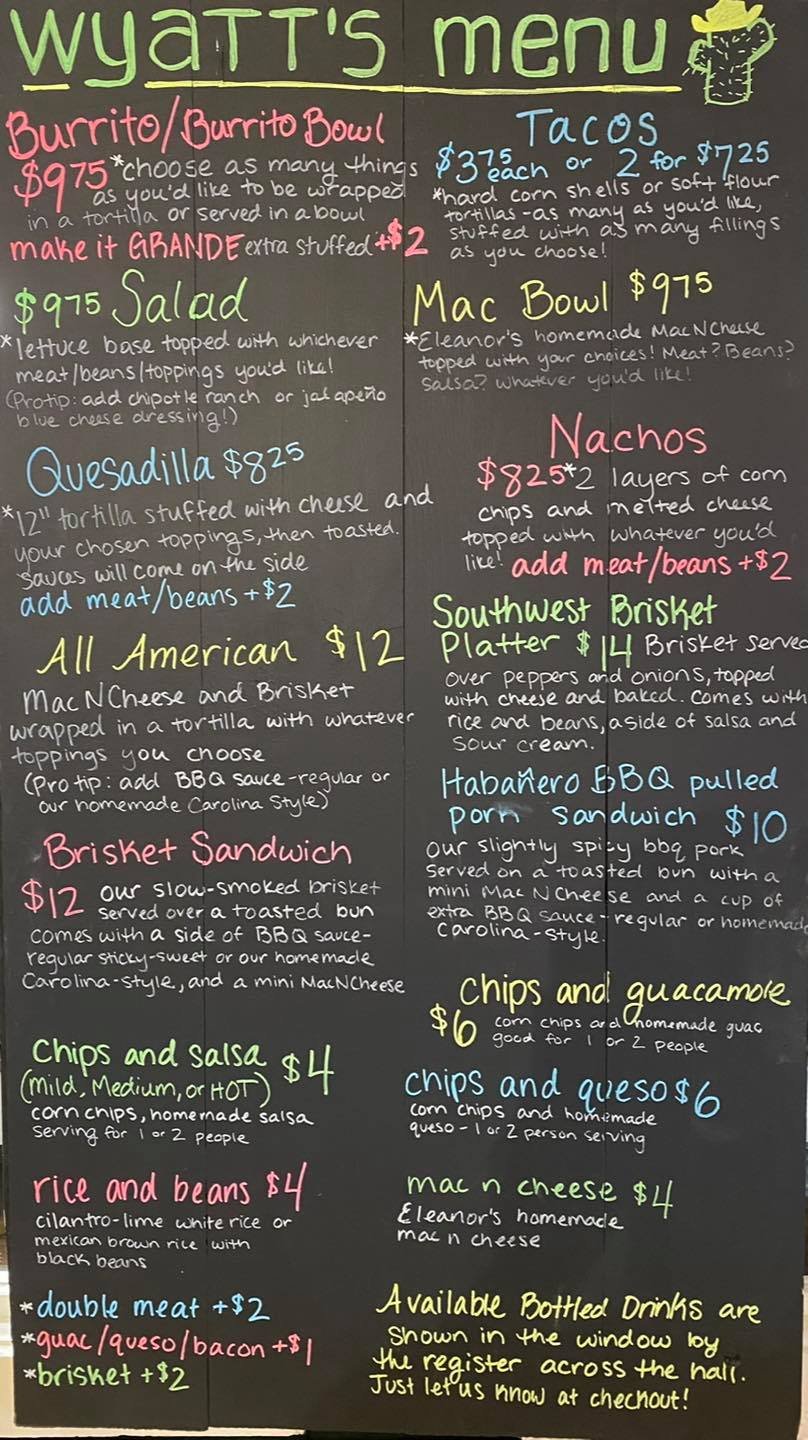 Wyatt's menu
Burrito/Burrito Bowl
$975 *choose as many things
as you'd like to be wrapped
in a tortilla or served in a bowl
make it GRANDE extra stuffed +$2
$975 Salad
*lettuce base topped with whichever
meat/beans/toppings you'd like!
(Protip: add chipotle ranch or jalapeño
blue cheese dressing!)
Quesadilla $825
*12" tortilla stuffed with cheese and
your chosen toppings, then toasted.
Sauces will come on the side
add meat/beans +$2
All American $12
Mac N Cheese and Brisket
wrapped in a tortilla with whatever
toppings you choose
(Pro tip: add BBQ sauce-regular or
our homemade Carolina Style)
Brisket Sandwich
$12 our slow-smoked brisket
served over a toasted bun
comes with a side of BBQ sauce-
regular sticky-sweet or our homemade
Carolina-style, and a mini MacNCheese
Chips and Salsa $4
(mild, Medium, or HOT)
corn chips, homemade salsa
Serving for 1 or 2 people
rice and beans $4
cilantro-lime white rice or
mexican brown rice with
black beans
*double meat +$2
*guac/queso/bacon +$1
*brisket +$2
Tacos
$375 each or 2 for $725
*hard corn shells or soft flour
tortillas-as many as you'd like,
stuffed with as many fillings
as you choose!
Mac Bowl $975
*Eleanor's homemade Mac N Cheese
topped with your choices! Meat? Beans?
Salsa? Whatever you'd like!
Nachos
$825 *2 layers of corn
chips and melted cheese
topped with whatever you'd
like! add meat/beans +$2
Southwest Brisket
Platter $14 Brisket served
over peppers and onions, topped
with cheese and baked. Comes with
rice and beans, a side of salsa and
sour cream.
Habañero BBQ pulled
porn sandwich $10
our slightly spicy bbq pork
served on a toasted bun with a
mini Mac N Cheese and a cup of
extra BBQ sauce-regular or homemade
Carolina-style.
Chips and guacamole
$6 corn chips and homemade guac
good for 1 or 2 people
chips and queso $6
corn chips and homemade
queso - 1 or 2 person serving
mac n cheese $4
Eleanor's homemade
mac n cheese
Available Bottled Drinks are
Shown in the window by
the register across the hall.
Just let us know at checkout!